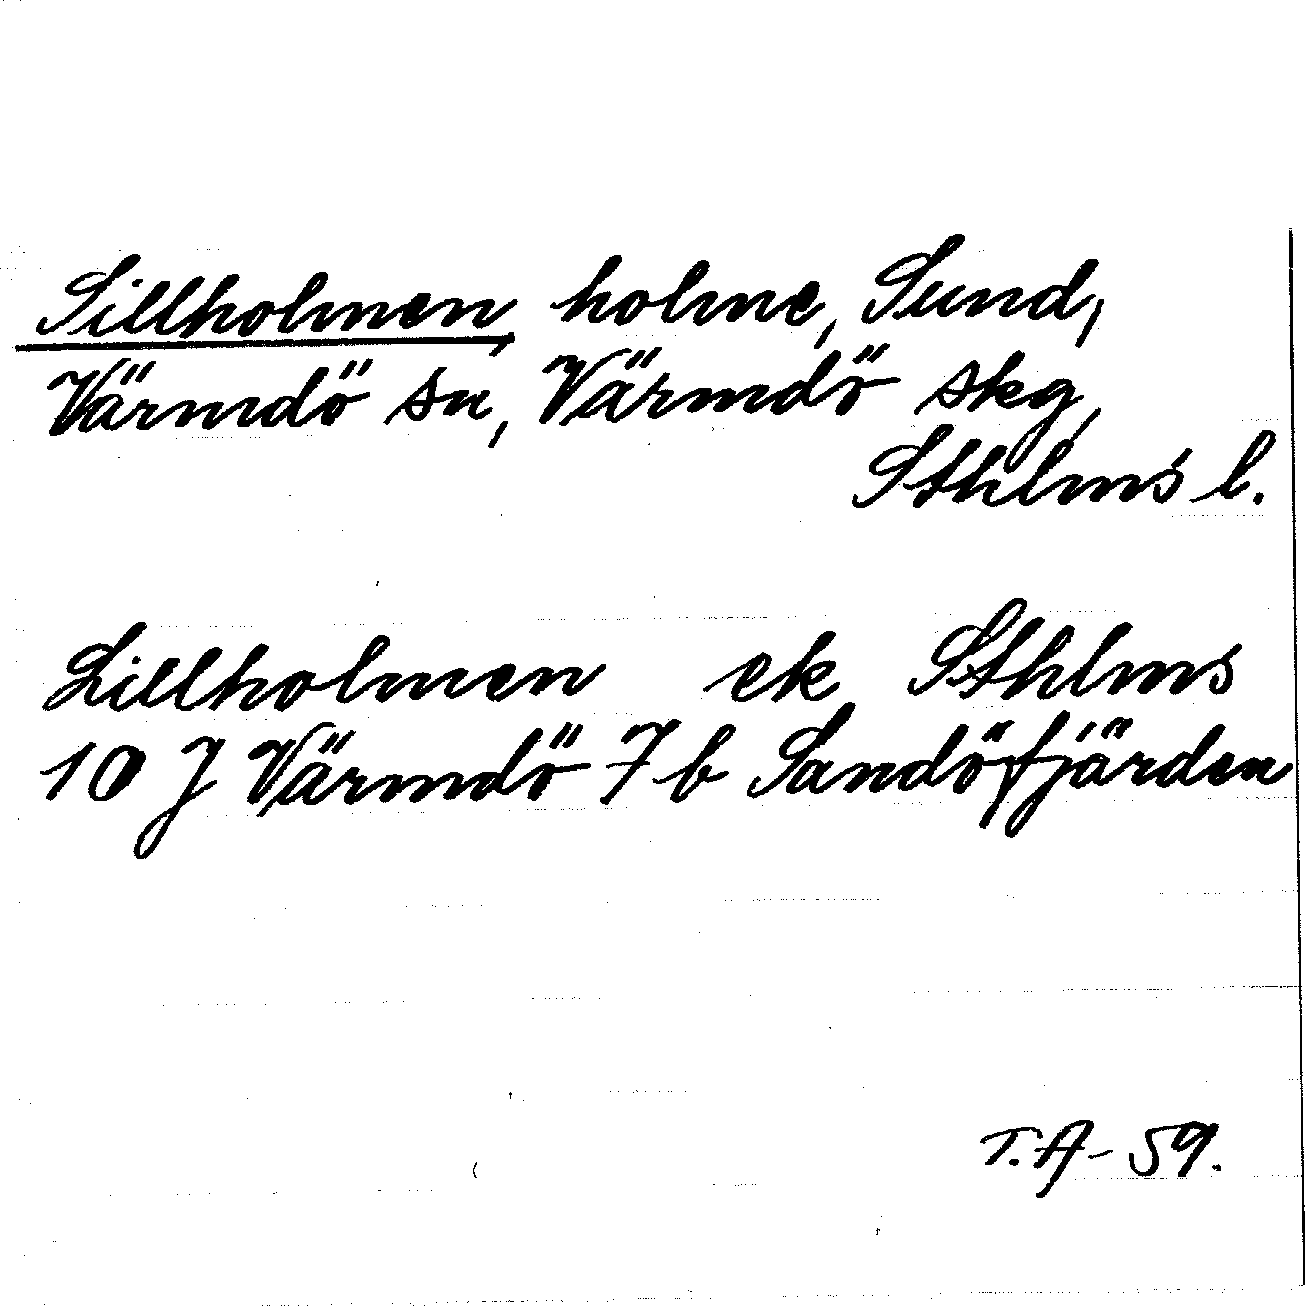 Sillholmen, holme, Sund,
Värmdö sn, Värmdö skg,
Sthlms l.
Lillholmen ek Sthlms
10 J Värmdö 7 b Sandöfjärden
T.A-59.